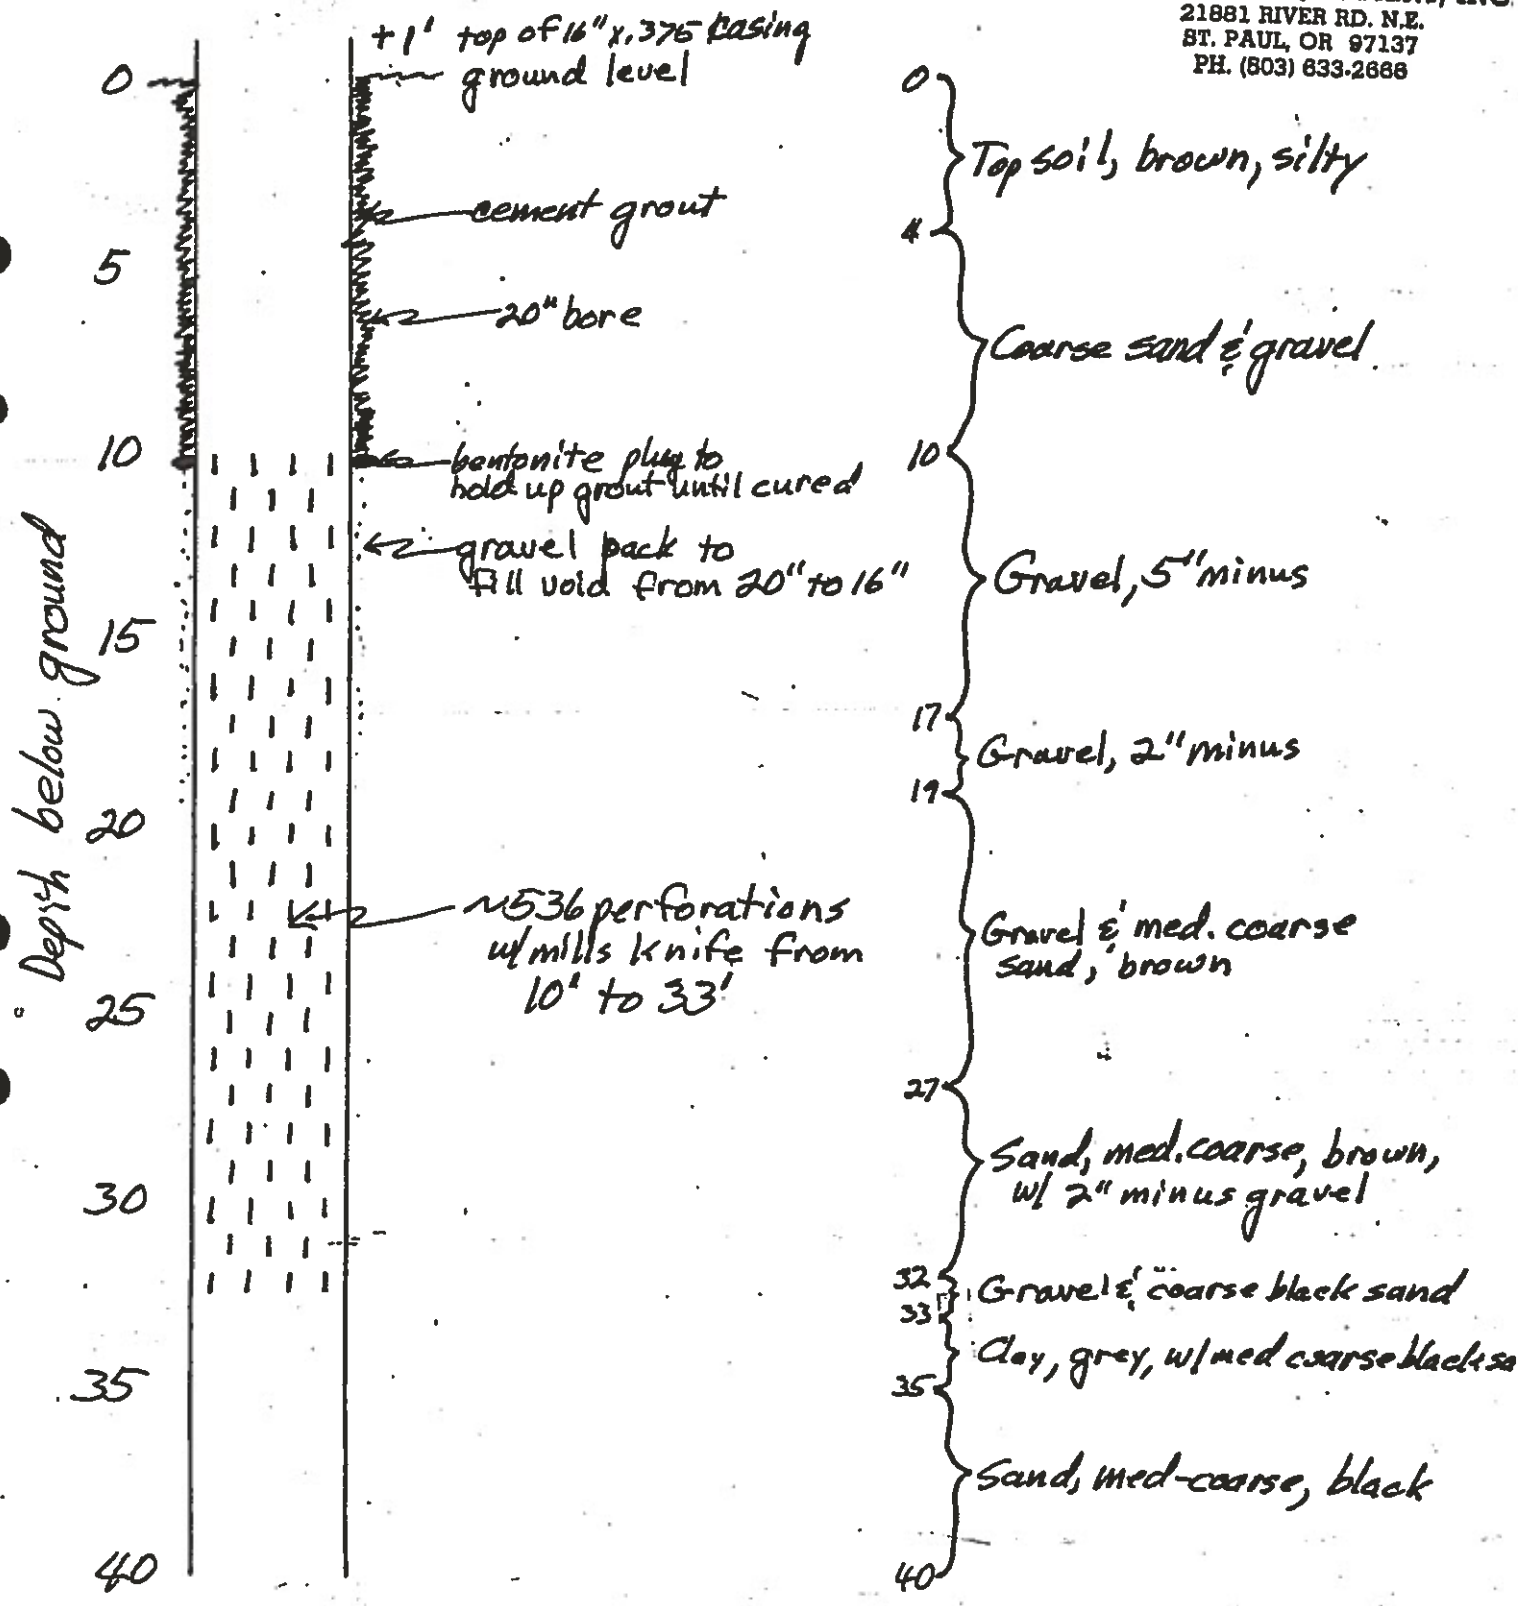 INC.
21881 RIVER RD. N.E.
ST. PAUL, OR 97137
PH. (503) 633-2666
+1' top of 16" x .375 casing
ground level
cement grout
20" bore
bentonite plug to
hold up grout until cured
gravel pack to
fill void from 20" to 16"
~536 perforations
w/ mills knife from
10' to 33'
Depth below ground
0
5
10
15
20
25
30
35
40
0
Top soil, brown, silty
4
Coarse sand & gravel
10
Gravel, 5" minus
17
Gravel, 2" minus
19
Gravel & med. coarse
sand, brown
27
Sand, med. coarse, brown,
w/ 2" minus gravel
32
Gravel & coarse black sand
33
Clay, grey, w/ med coarse black sa
35
Sand, med-coarse, black
40